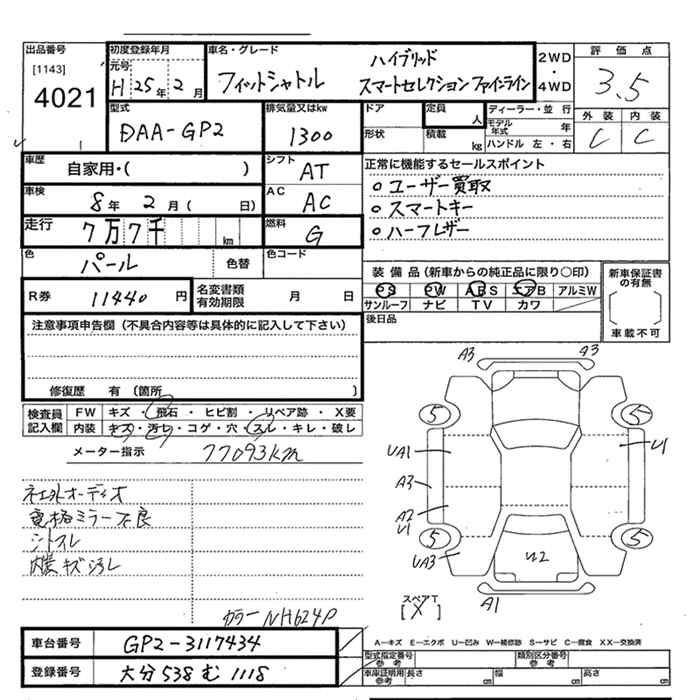 出品番号
[1143]
4021
初度登録年月
元号
H 25年 2月
車名・グレード
ハイブリッド
フィットシャトル スマートセレクション ファインライン
2WD
・
4WD
評価点
3.5
外装 内装
C C
型式
DAA-GP2
排気量又はkw
1300
ドア
形状
定員
人
積載
kg
ディーラー・並行
モデル年式 年
ハンドル 左・右
車歴
自家用・( )
シフト
AT
正常に機能するセールスポイント
○ユーザー買取
○スマートキー
○ハーフレザー
車検
8年 2月 ( 日)
AC
AC
走行
7万7千 km
燃料
G
色
パール
色替
色コード
R券
11440 円
名変書類有効期限
月 日
装備品(新車からの純正品に限り○印)
PS PW ABS エアB アルミW
サンルーフ ナビ TV カワ
新車保証書の有無
車載不可
後日品
注意事項申告欄(不具合内容等は具体的に記入して下さい)
修復歴 有(箇所 )
検査員記入欄
FW キズ・飛石・ヒビ割・リペア跡・X要
内装 キズ・汚レ・コゲ・穴・スレ・キレ・破レ
メーター指示 77093km
社外オーディオ
電格ミラー不良
シートスレ
内装キズ汚レ
カラーNH624P
A3 A3
5 5
UA1 U1
A3
A2
U1
5 5
UA3 U2
A1
スペアT
[X]
車台番号 GP2-3117434
登録番号 大分 538 む 1118
A-キズ E-エクボ U-凹み W-補修跡 S-サビ C-腐食 XX-交換済
型式指定番号参考 類別区分番号参考
車庫証明用参考 長さ cm 幅 cm 高さ cm